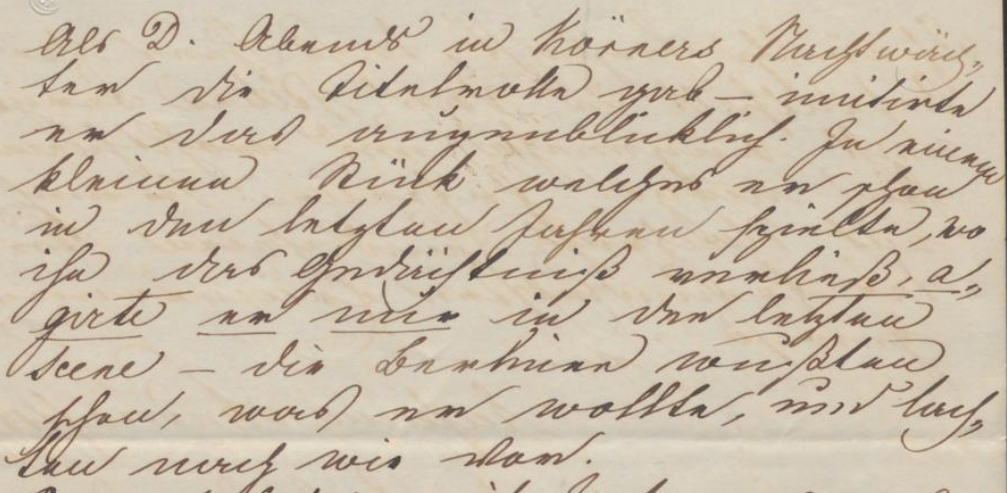 Als D. Abends in Körners Nachtwäch-
ter die Titelrolle gab – imitirte
er das augenblicklich. In einem
kleinen Stück welches er schon
in den letzten Jahren spielte, wo
ihn das Gedächtniß verließ, a-
girte er nur in der letzten
Scene – die Berliner wußten
schon, was er wollte, und lach-
ten nach wie vor.